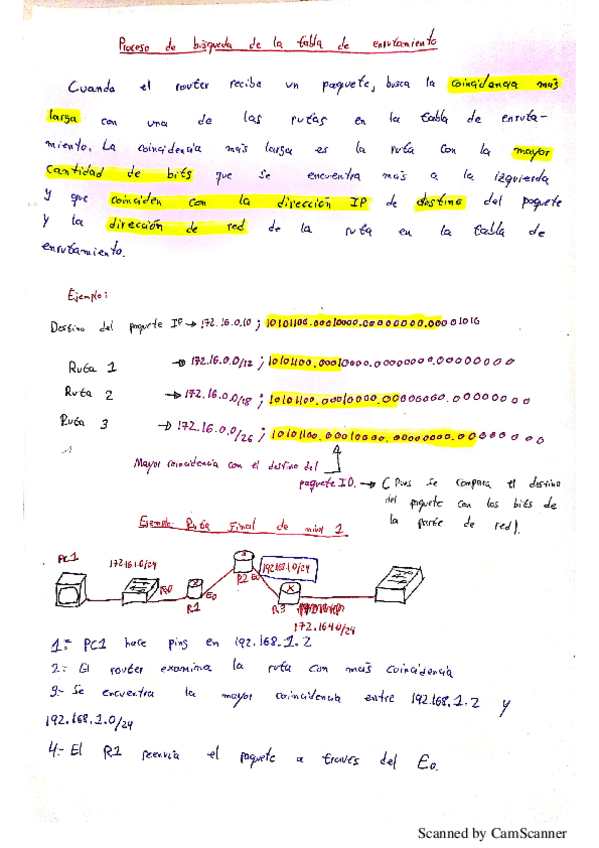 Proceso de búsqueda de la tabla de enrutamiento
Cuando el router recibe un paquete, busca la coincidencia más
larga con una de las rutas en la tabla de enruta-
miento. La coincidencia más larga es la ruta con la mayor
cantidad de bits que se encuentra más a la izquierda
y que coinciden con la dirección IP de destino del paquete
y la dirección de red de la ruta en la tabla de
enrutamiento.
Ejemplo:
Destino del paquete IP → 172.16.0.10 ; 10101100.00010000.00000000.00001010
Ruta 1 → 172.16.0.0/12 ; 10101100.00010000.00000000.00000000
Ruta 2 → 172.16.0.0/18 ; 10101100.00010000.00000000.00000000
Ruta 3 → 172.16.0.0/26 ; 10101100.00010000.00000000.00000000
Mayor coincidencia con el destino del
paquete IP. → (Pues se compara el destino
del paquete con los bits de
la parte de red).
Ejemplo: Ruta Final de nivel 1
PC1
172.16.1.0/24
R0
R1
E0
R2
E0
192.168.1.0/24
R3
172.16.4.0/24
1.- PC1 hace pings en 192.168.1.2
2.- El router examina la ruta con más coincidencia
3.- Se encuentra la mayor coincidencia entre 192.168.1.2 y
192.168.1.0/24
4.- El R1 reenvía el paquete a través del E0.
Scanned by CamScanner